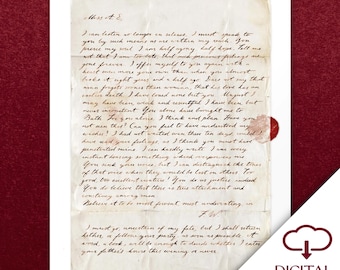 Miss A. E.
I can listen no longer in silence. I must speak to
you by such means as are within my reach. You
pierce my soul. I am half agony, half hope. Tell me
not that I am too late, that such precious feelings are
gone forever. I offer myself to you again with a
heart even more your own than when you almost
broke it eight years and a half ago. Dare not say that
man forgets sooner than woman, that his love has an
earlier death. I have loved none but you. Unjust I
may have been, weak and resentful I have been, but
never inconstant. You alone have brought me to
Bath. For you alone, I think and plan. Have you
not seen this? Can you fail to have understood my
wishes? I had not waited even these ten days, could I
have read your feelings, as I think you must have
penetrated mine. I can hardly write. I am every
instant hearing something which overpowers me.
You sink your voice, but I can distinguish the tones
of that voice when they would be lost on others. Too
good, too excellent creature! You do us justice, indeed.
You do believe that there is true attachment and
constancy among men.
Believe it to be most fervent, most undeviating, in
F. W.
I must go, uncertain of my fate, but I shall return
hither, or follow your party, as soon as possible. A
word, a look, will be enough to decide whether I enter
your father's house this evening or never.
DIGITAL